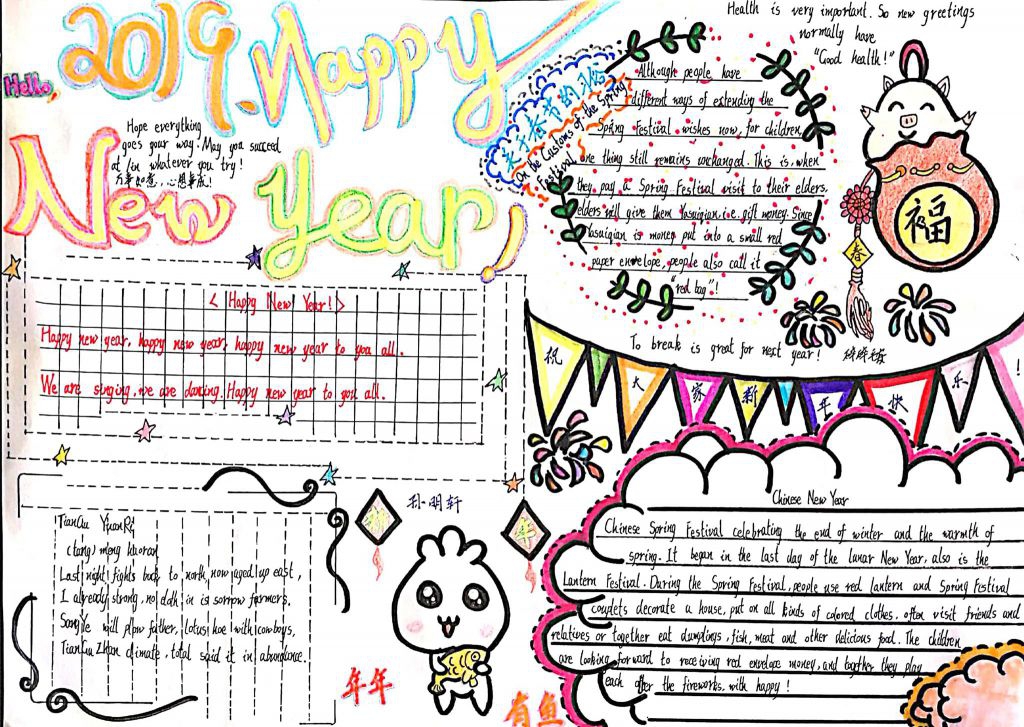 Hello,
2019. Happy
New Year!
Hope everything
goes your way. May you succeed
at/in whatever you try!
万事如意，心想事成！
关于春节的习俗
On the Customs of the Spring
Festival
Although people have
different ways of extending the
Spring Festival wishes now, for children,
one thing still remains unchanged. This is, when
they pay a Spring Festival visit to their elders,
elders will give them Yasuiqian, i.e. gift money. Since
Yasuiqian is money put into a small red
paper envelope, people also call it
"red bag"!
Health is very important. So new greetings
normally have
"Good health!"
福
春
To break is great for next year! 碎碎平安
祝大家新年快乐！
< Happy New Year! >
Happy new year, happy new year, happy new year to you all.
We are singing, we are dancing. Happy new year to you all.
TianJu YuanRi
(tang) meng haoran
Last night fights back to north, now aged up east,
I already strong, no ddh in is sorrow farmers.
Sang Ye will plow father, lotus hoe with cowboys,
TianJu Zhan climate, total said it in abundance.
孙明轩
年年
有鱼
Chinese New Year
Chinese Spring Festival celebrating the end of winter and the warmth of
spring. It began in the last day of the lunar New Year, also is the
Lantern Festival. During the Spring Festival, people use red lantern and Spring Festival
couplets decorate a house, put on all kinds of colored clothes, often visit friends and
relatives or together eat dumplings, fish, meat and other delicious food. The children
are looking forward to receiving red envelope money, and together they play
each other the fireworks, with happy!